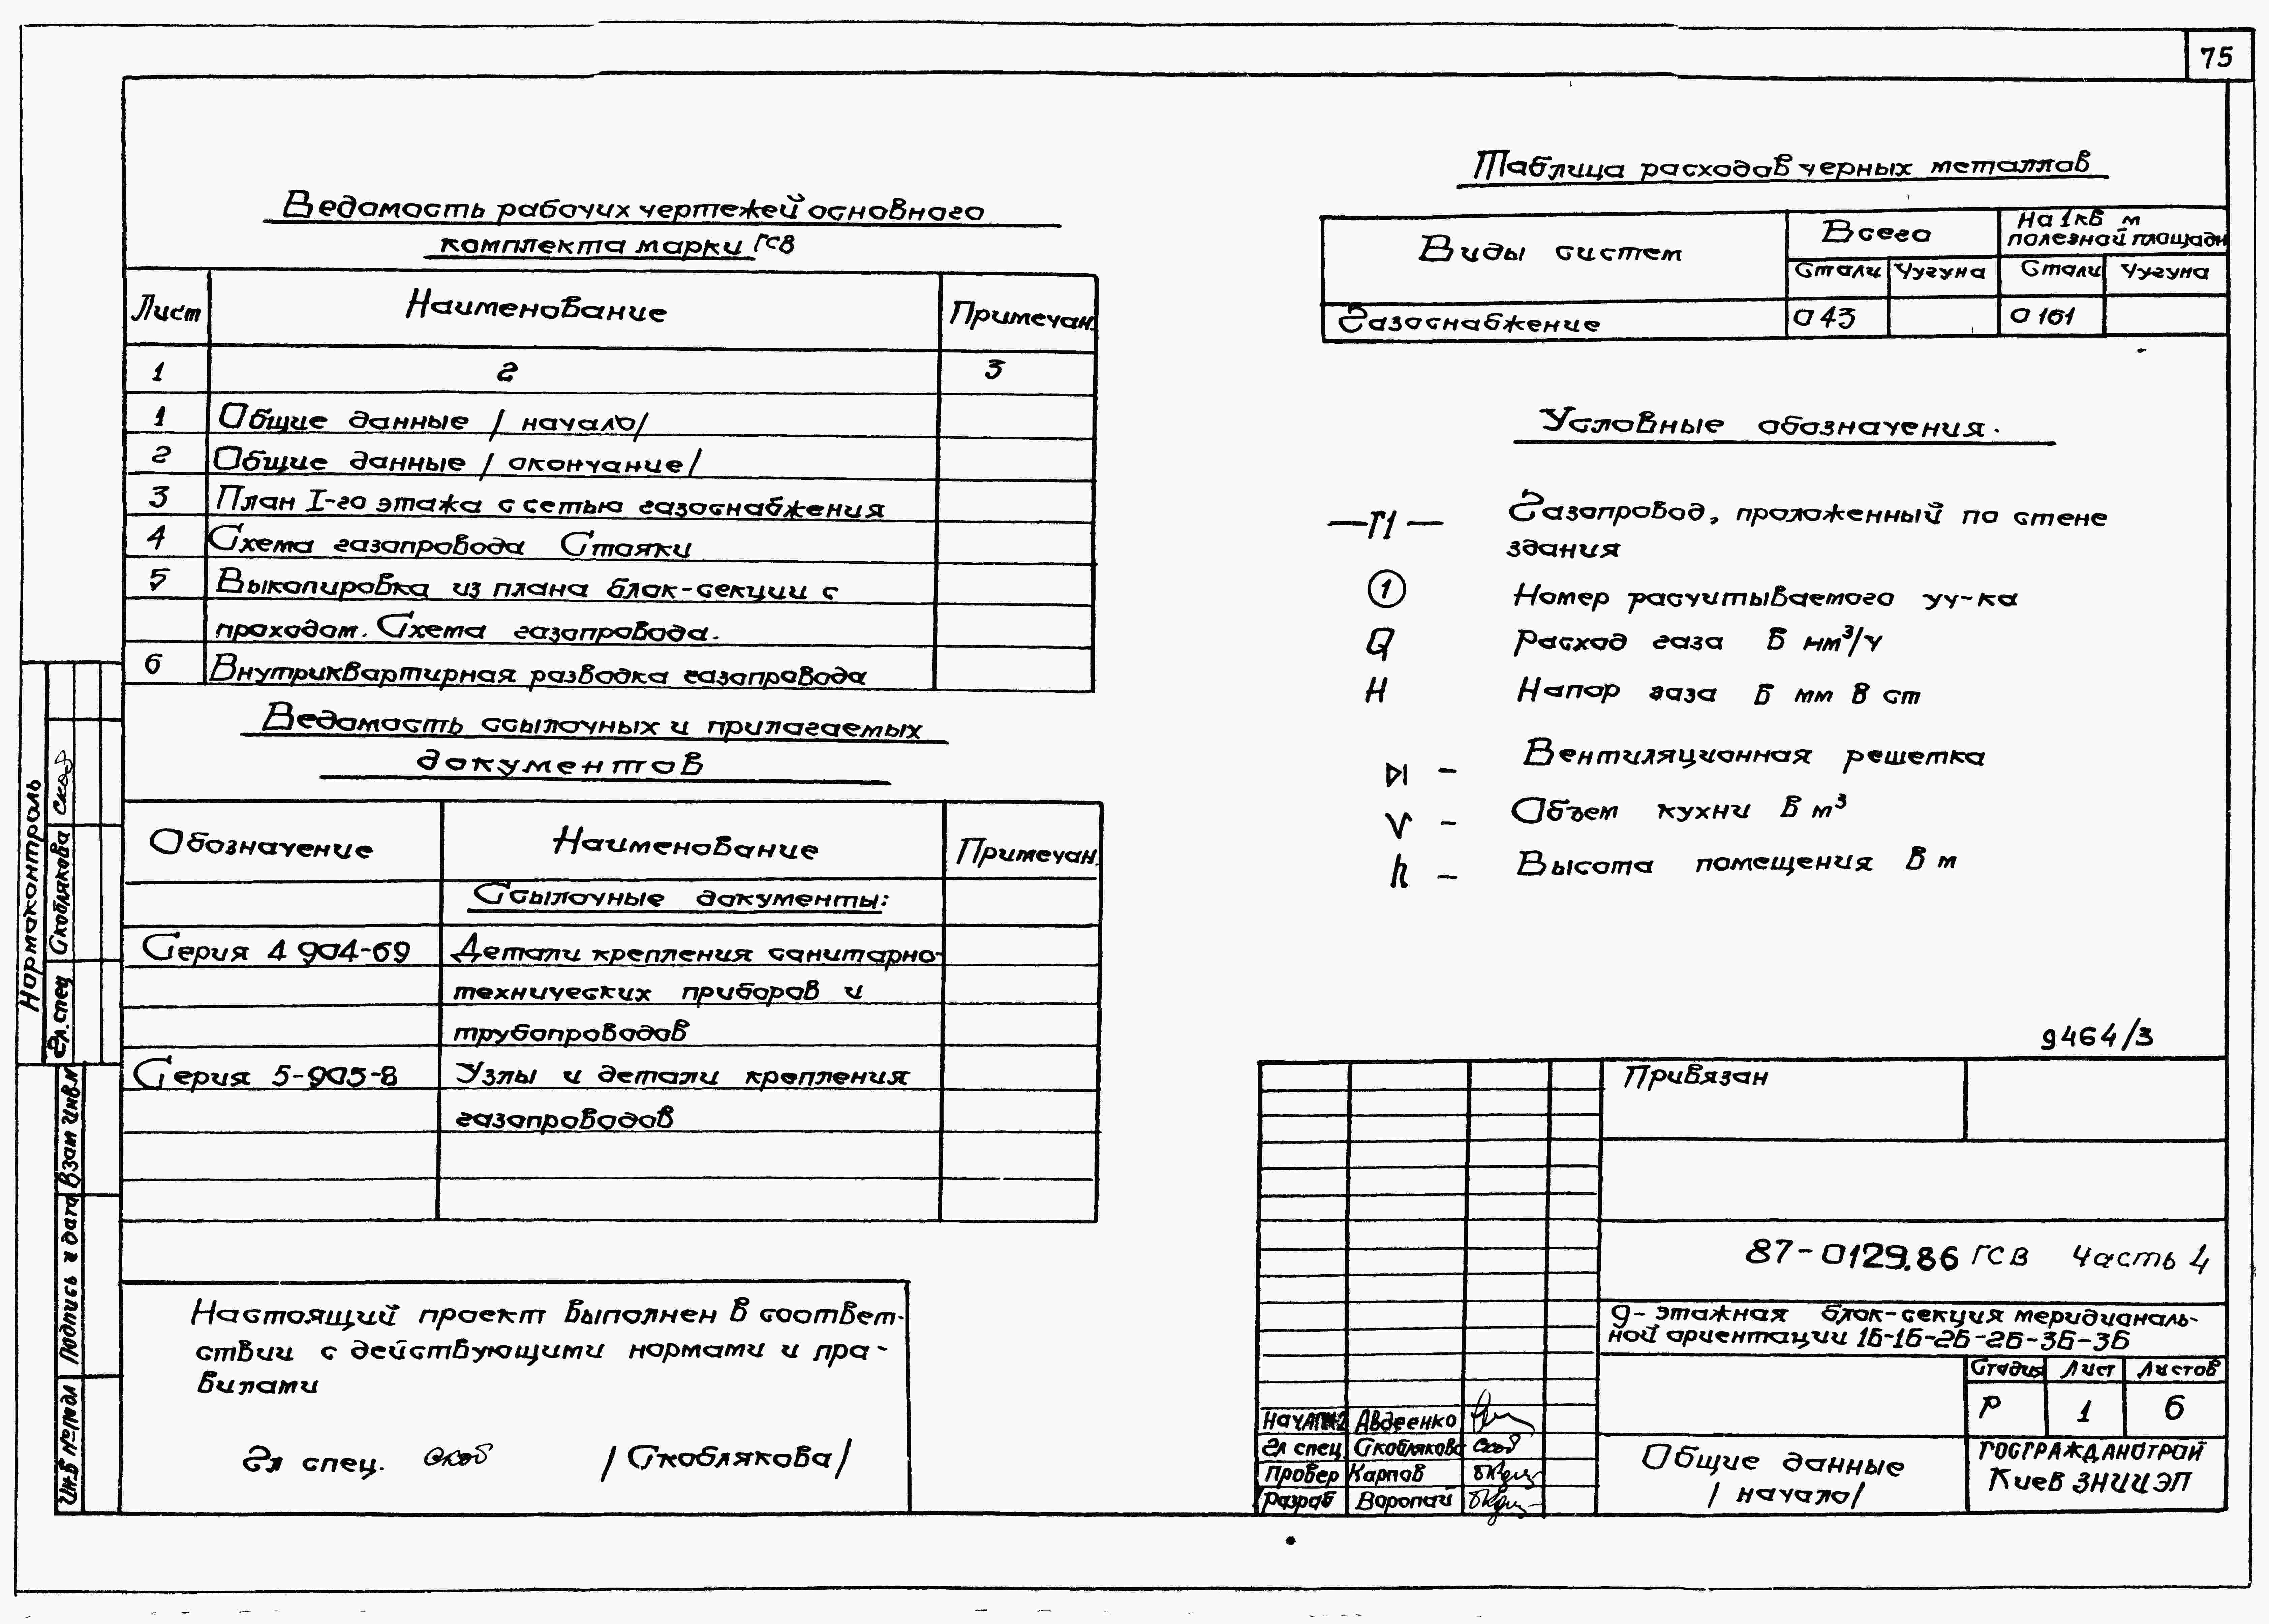 75
Ведомость рабочих чертежей основного
комплекта марки ГСВ
Лист Наименование Примечан.
1 2 3
1 Общие данные /начало/
2 Общие данные /окончание/
3 План I-го этажа с сетью газоснабжения
4 Схема газопровода Стояки
5 Выкопировка из плана блок-секции с
проходом. Схема газопровода.
6 Внутриквартирная разводка газопровода
Ведомость ссылочных и прилагаемых
документов
Обозначение Наименование Примечан.
Ссылочные документы:
Серия 4 904-69 Детали крепления санитарно-
технических приборов и
трубопроводов
Серия 5-905-8 Узлы и детали крепления
газопроводов
Настоящий проект выполнен в соответ-
ствии с действующими нормами и пра-
вилами
Гл спец. Скоб /Скоблякова/
Таблица расходов черных металлов
Виды систем Всего На 1 кв м
полезной площади
Стали Чугуна Стали Чугуна
Газоснабжение 0 43 0 161
Условные обозначения.
—Г1— Газопровод, проложенный по стене
здания
1 Номер расчитываемого уч-ка
Q Расход газа в нм³/ч
H Напор газа в мм в ст
– Вентиляционная решетка
V – Объем кухни в м³
h – Высота помещения в м
9464/3
Привязан
87-0129.86 ГСВ Часть 4
9-этажная блок-секция меридиональ-
ной ориентации 1Б-1Б-2Б-2Б-3Б-3Б
Стадия Лист Листов
Р 1 6
Нач. Авдеенко
Гл спец Скоблякова Скоб
Провер Карпов
Разраб Воропай
Общие данные
/начало/
ГОСГРАЖДАНСТРОЙ
Киев ЗНИИЭП
Нормоконтроль
Гл. спец Скоблякова Скоб
Взам инв.№
Подпись и дата
Инв № подл